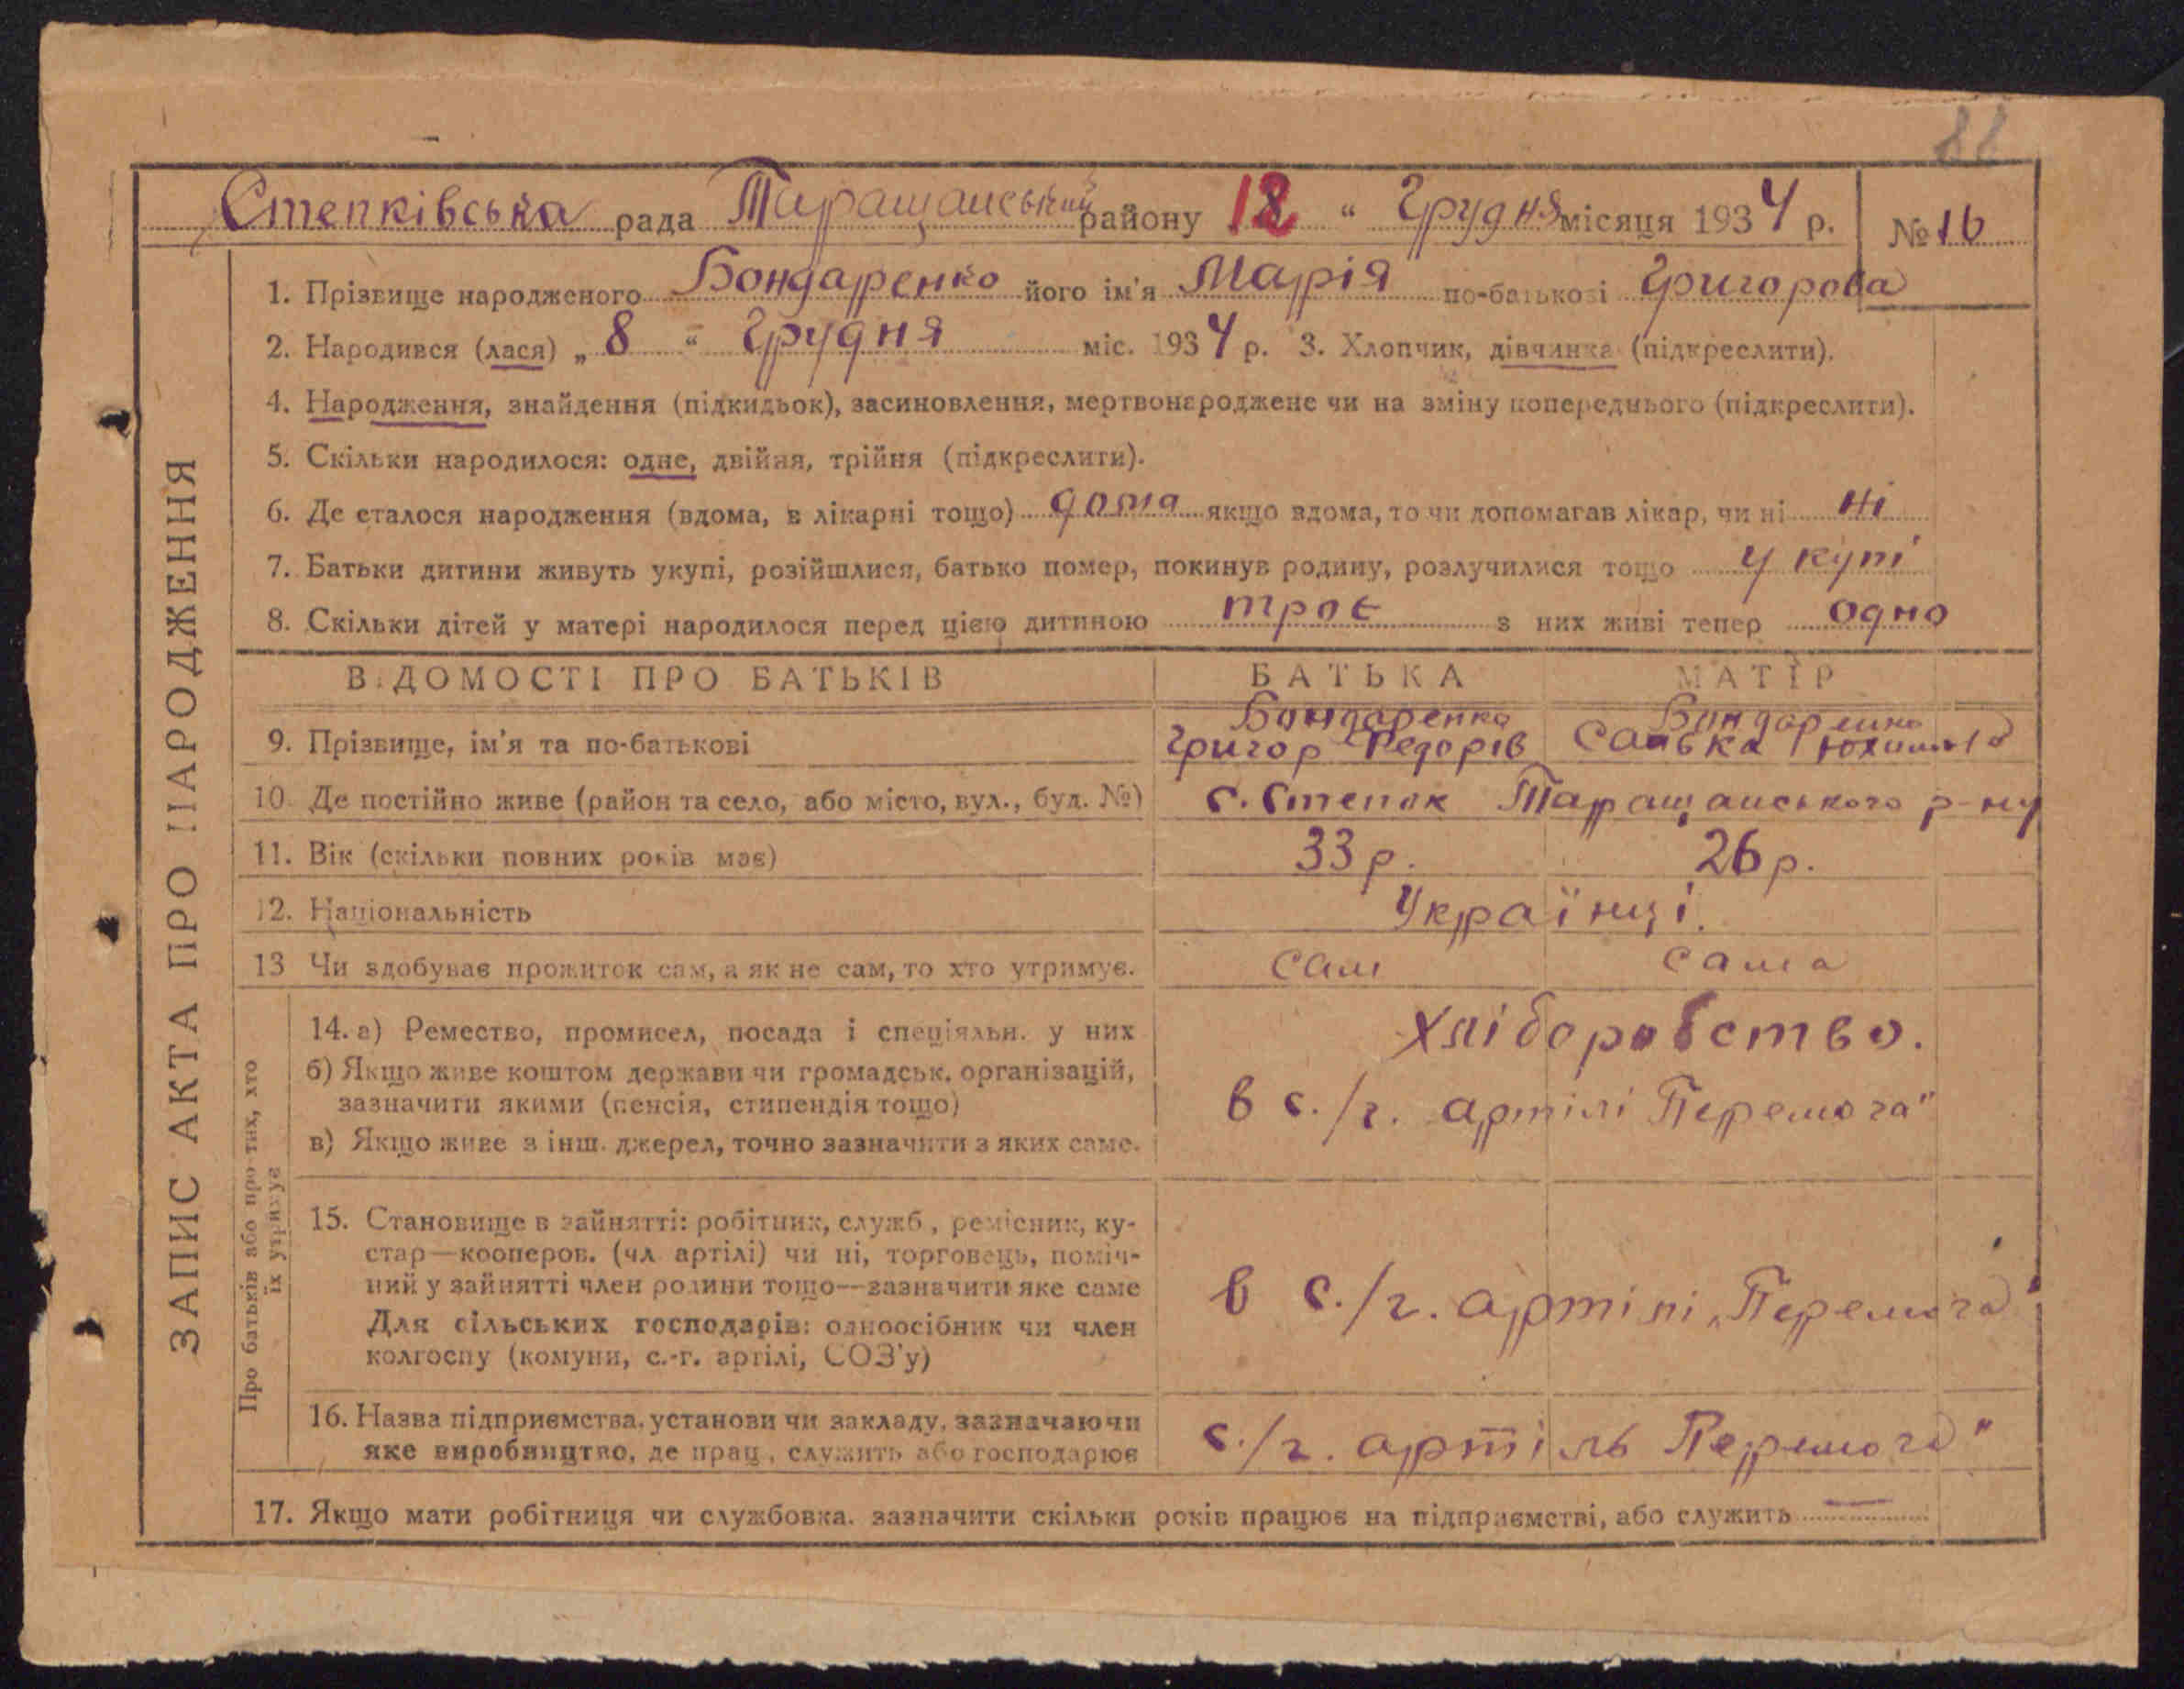 88
Степківська рада Таращанський району 18 " Грудня місяця 1934 р. № 16
ЗАПИС АКТА ПРО НАРОДЖЕННЯ
1. Прізвище народженого Бондаренко його ім'я Марія по-батькові Григорова
2. Народився (лася) „ 8 " Грудня міс. 1934 р. 3. Хлопчик, дівчинка (підкреслити).
4. Народження, знайдення (підкидьок), засиновлення, мертвонароджене чи на зміну попереднього (підкреслити).
5. Скільки народилося: одне, двійня, трійня (підкреслити).
6. Де сталося народження (вдома, в лікарні тощо) дома якщо вдома, то чи допомагав лікар, чи ні ні
7. Батьки дитини живуть укупі, розійшлися, батько помер, покинув родину, розлучилися тощо у купі
8. Скільки дітей у матері народилося перед цією дитиною троє з них живі тепер одно
ВІДОМОСТІ ПРО БАТЬКІВ БАТЬКА МАТІР
Бондаренко Бондаренко
9. Прізвище, ім'я та по-батькові Григор Федорів Санька Юхимова
10. Де постійно живе (район та село, або місто, вул., буд. №) с. Степок Таращанського р-ну
11. Вік (скільки повних років має) 33 р. 26 р.
12. Національність Українці.
13 Чи здобуває прожиток сам, а як не сам, то хто утримує. сам сама
Про батьків або про тих, хто
їх утримує
14. а) Ремество, промисел, посада і спеціяльн. у них хліборобство.
б) Якщо живе коштом держави чи громадськ. організацій,
зазначити якими (пенсія, стипендія тощо) в с./г. артілі Перемога"
в) Якщо живе з інш. джерел, точно зазначити з яких саме.
15. Становище в зайнятті: робітник, служб., ремісник, ку-
стар—кооперов. (чл. артілі) чи ні, торговець, поміч-
ний у зайнятті член родини тощо—зазначити яке саме в с./г. артілі „Перемога"
Для сільських господарів: одноосібник чи член
колгоспу (комуни, с.-г. артілі, СОЗ'у)
16. Назва підприємства, установи чи закладу, зазначаючи с./г. артіль Перемога"
яке виробництво, де прац., служить або господарює
17. Якщо мати робітниця чи службовка, зазначити скільки років працює на підприємстві, або служить —